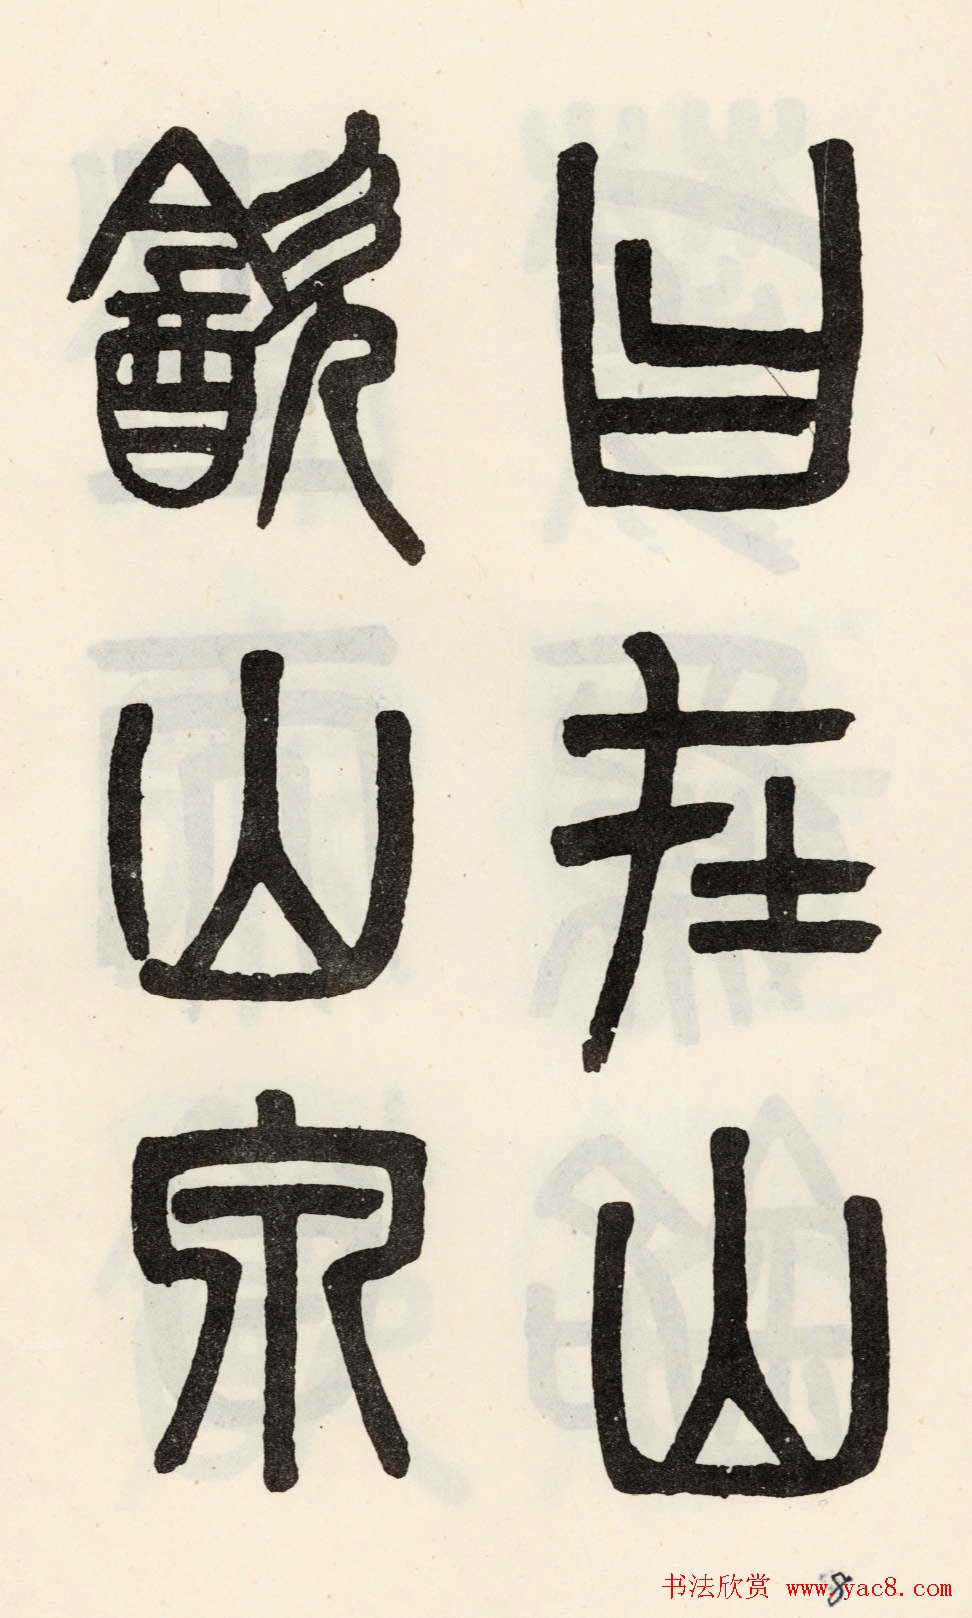 曰在山
飲山泉
书法欣赏 www.yac8.com
8